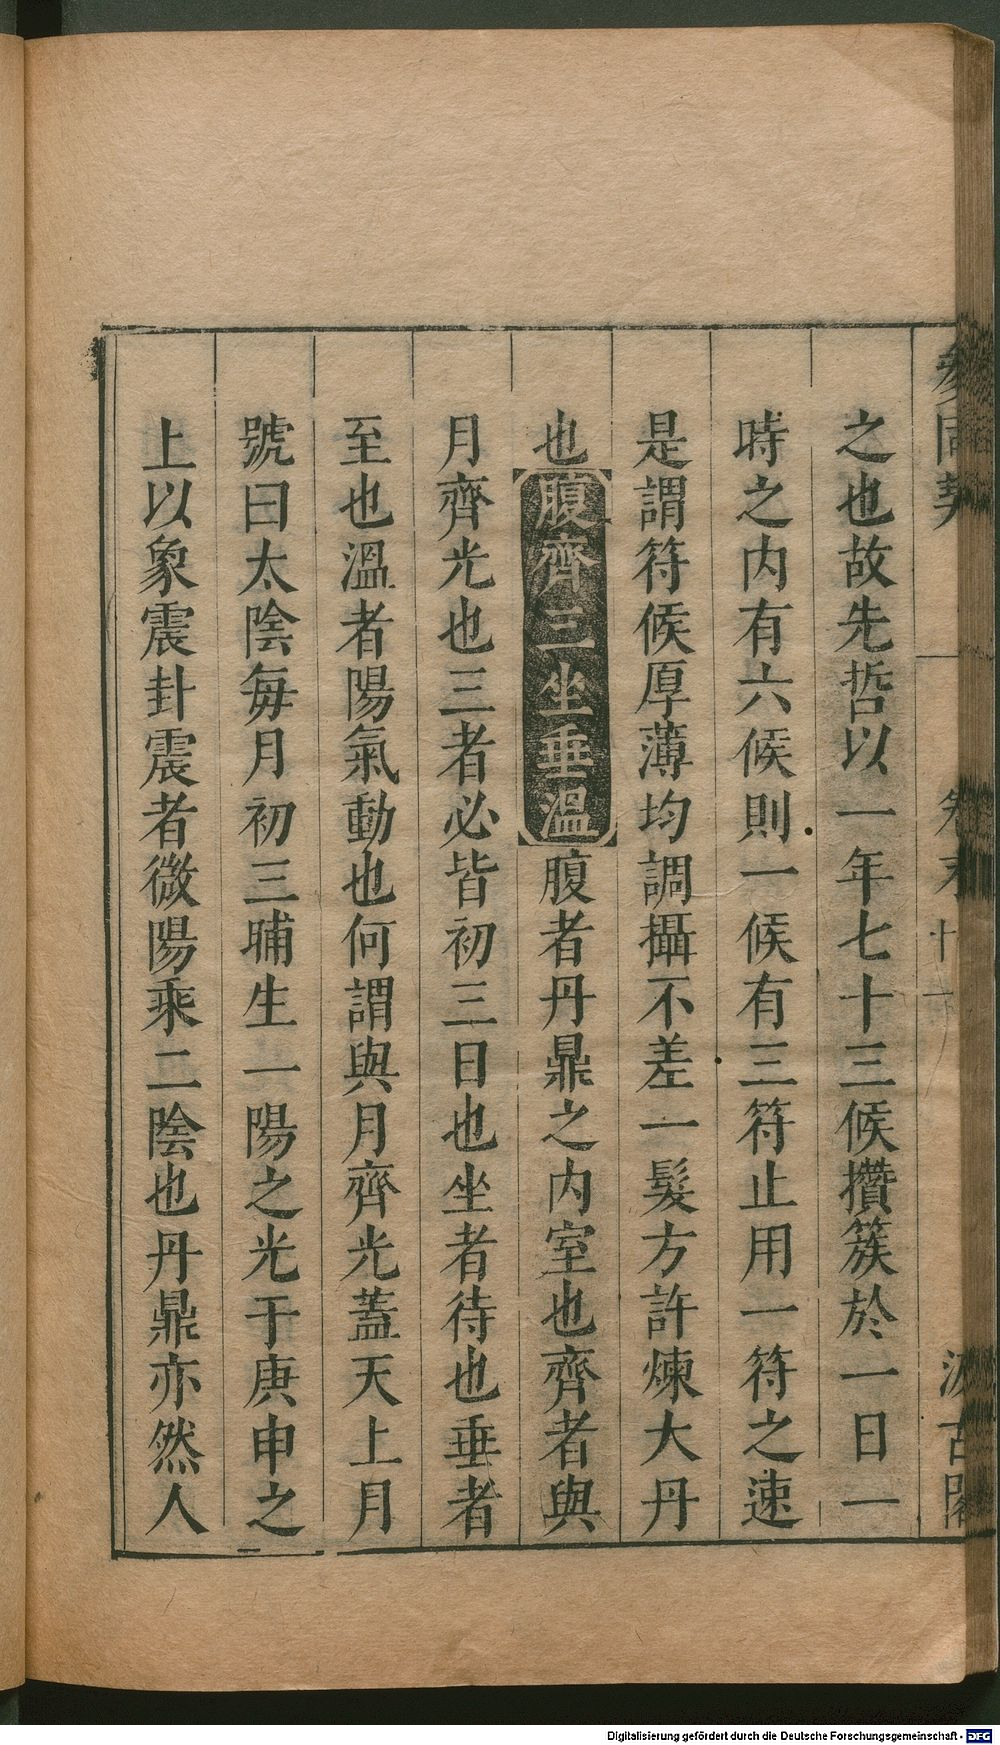 參同契 卷末 汲古閣
之也故先哲以一年七十三候攢簇於一日一
時之内有六候則一候有三符止用一符之速
是謂符候厚薄均調攝不差一髮方許煉大丹
也腹齊三坐垂溫腹者丹鼎之内室也齊者與
月齊光也三者必皆初三日也坐者待也垂者
至也溫者陽氣動也何謂與月齊光蓋天上月
號曰太陰每月初三晡生一陽之光于庚申之
上以象震卦震者微陽乘二陰也丹鼎亦然人
Digitalisierung gefördert durch die Deutsche Forschungsgemeinschaft - DFG